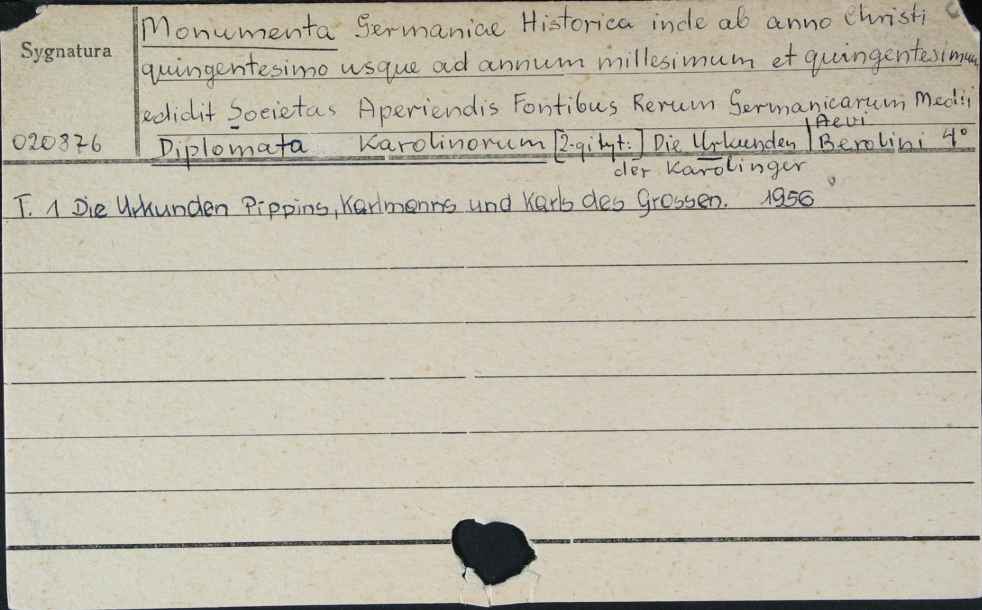 Monumenta Germaniae Historica inde ab anno Christi
Sygnatura
quingentesimo usque ad annum millesimum et quingentesimum
edidit Societas Aperiendis Fontibus Rerum Germanicarum Medii
Aevi
020376 Diplomata Karolinorum [2-gi tyt:] Die Urkunden Berolini 4°
der Karolinger
T. 1 Die Urkunden Pippins, Karlmanns und Karls des Grossen. 1956